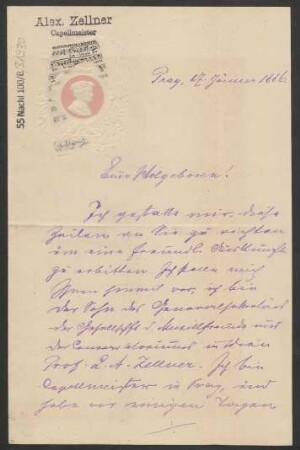 Alex. Zellner
Capellmeister
55 Nachl 100/E
Prag, 17. Jänner 1886.
Euer Wolgeboren!
Ich gestatte mir, diese
Zeilen an Sie zu richten
um eine freundl. Auskunft
zu erbitten. Ich stelle mich
Ihnen vor, ich bin
der Sohn des Generalsekretärs
der Gesellschft d. Musikfreunde und
des Conservatoriums in Wien
Prof. L. A. Zellner. Ich bin
Capellmeister in Prag, und
habe vor einigen Tagen